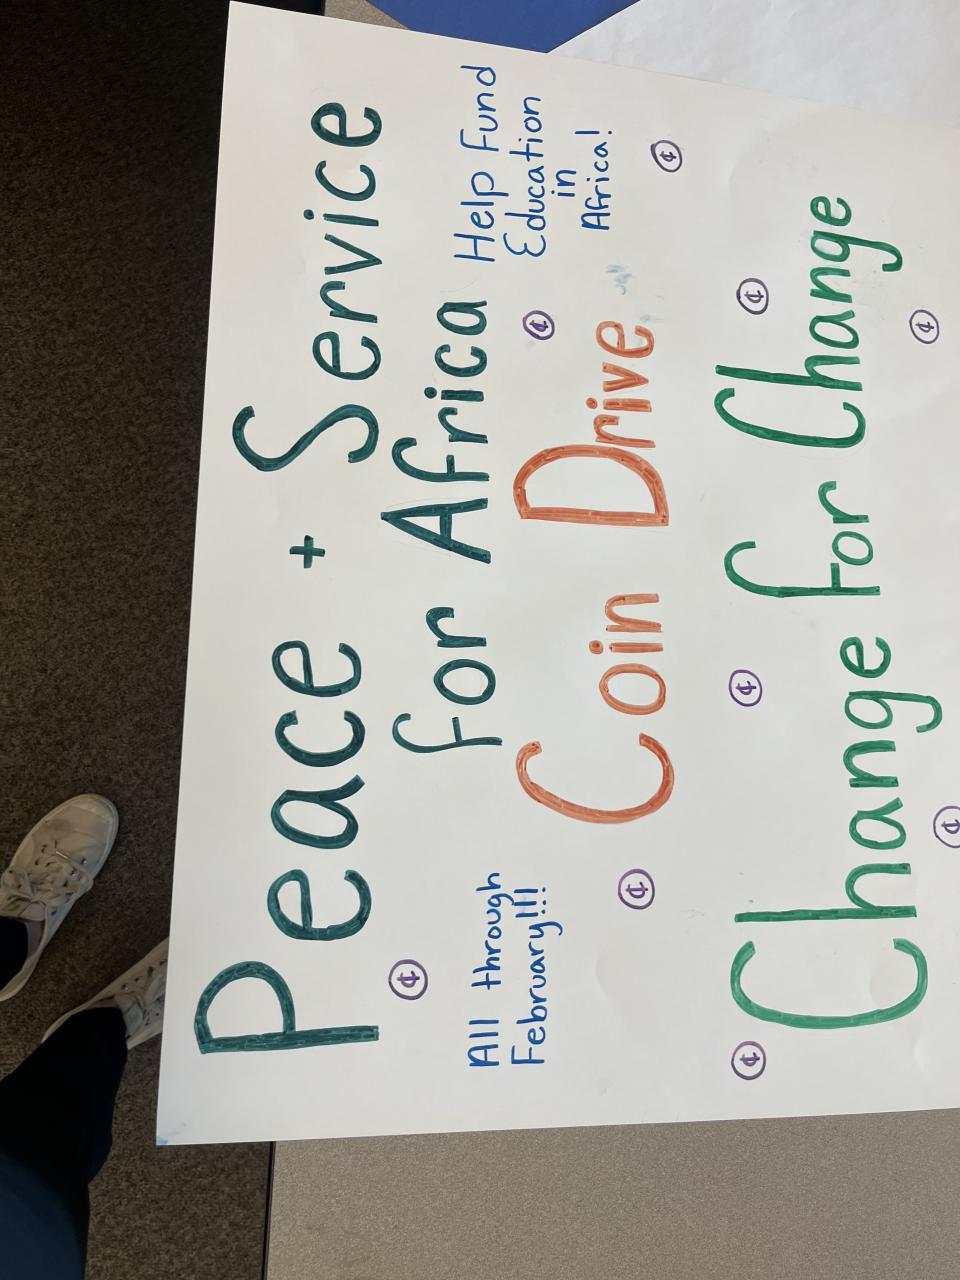 Peace + Service
for Africa
All through
February!!!
Help Fund
Education
in
Africa!
Coin Drive
Change for Change
¢
¢
¢
¢
¢
¢
¢
¢
¢